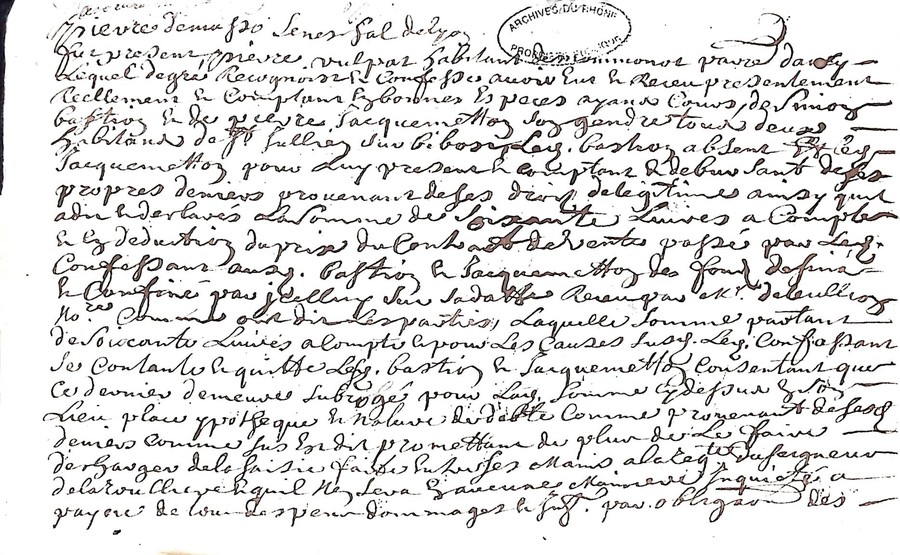 pierre demasso Senes fal de lyon
ARCHIVES DU RHÔNE
fut present pierre vulpat habitant de commonot parre dancy
Lequel de gre Recognoist et Confesse avoir eut et Receu presentement
Reellement et Comptant en bonnes Especes ayans Cours, de Simon
bastion et de pierre Jacquemetton son gendre tous deux
habitans de St Jullien sur bibost, Led. bastion absent Et led.
Jacquemetton pour luy present et Comptant et deboursant de ses
propres deniers provenant de ses droits de legitime ainsy quil
a dit et declaré La Somme de Soixante Livres a Compte
et En deduction du prix du Contract de vente passé par Led.
Confessant ausd. bastion et Jacquemetton des fonds designé
et Confiné par jcelluy sur sa datte Receu par Me.
No.re Comme ont dit Les parties, Laquelle Somme partant
de Soixante Livres a Compte et pour Les Causes susd. Led. Confessant
se Contante et quitte Lesd. bastion et Jacquemetton Consentant que
Ce dernier demeure subrogé pour Lad. Somme Cy dessus En son
Lieu, place ypotheque et Nature de debte Comme provenant de sesd.
deniers Comme sus Est dit promettant de plus de Le faire
descharger de la saisie faite Entre ses Mains a la req.te du seigneur
de la et quil Nen sera En aucune Maniere Inquieté a
payne de tous despens dommages et Int. par obligaon des